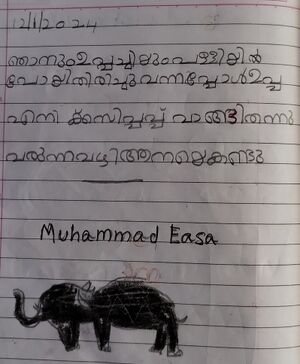 12/1/2024
ഞാനുംഉപ്പച്ചിയുംപള്ളിയിൽ
പോയിതിരിച്ചുവന്നപ്പോൾഉപ്പ
എനി ക്സെിപ്പപ്പ് വാങ്ങിതന്നു
വരുന്നവഴിആനയെകണ്ടു
Muhammad Easa